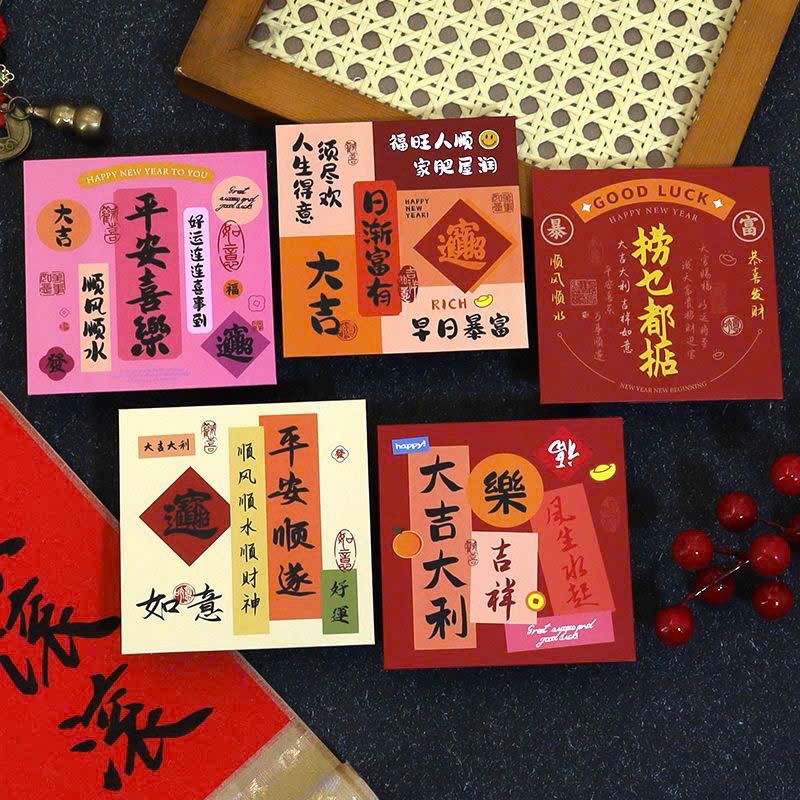 HAPPY NEW YEAR TO YOU
大吉
平安喜樂
好运连连喜事到
顺风顺水
發
福
如意
招财进宝
人生得意
须尽欢
福旺人顺
家肥屋润
日渐富有
HAPPY
NEW
YEAR!
招财进宝
大吉
RICH
早日暴富
GOOD LUCK
HAPPY NEW YEAR
暴
富
捞乜都掂
顺风顺水
恭喜发财
大吉大利 吉祥如意
平安喜乐
NEW YEAR NEW BEGINNING
大吉大利
顺风顺水顺财神
平安顺遂
發
招财进宝
如意
如意
好運
happy!
大吉大利
樂
福
吉祥
风生水起
good luck!
派
派